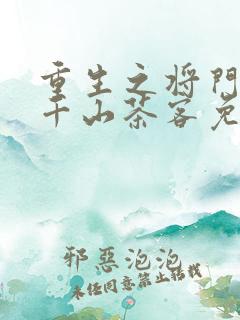 重生之将門
千山茶客免
邪惡泡泡
未经同意禁止转载